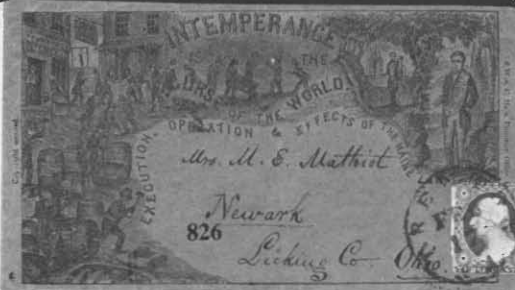 INTEMPERANCE
IS THE
CURSE OF THE WORLD.
EXECUTION, OPERATION & EFFECTS OF THE MAINE
Mrs. M. E. Mathiot
Newark
826
Licking Co Ohio